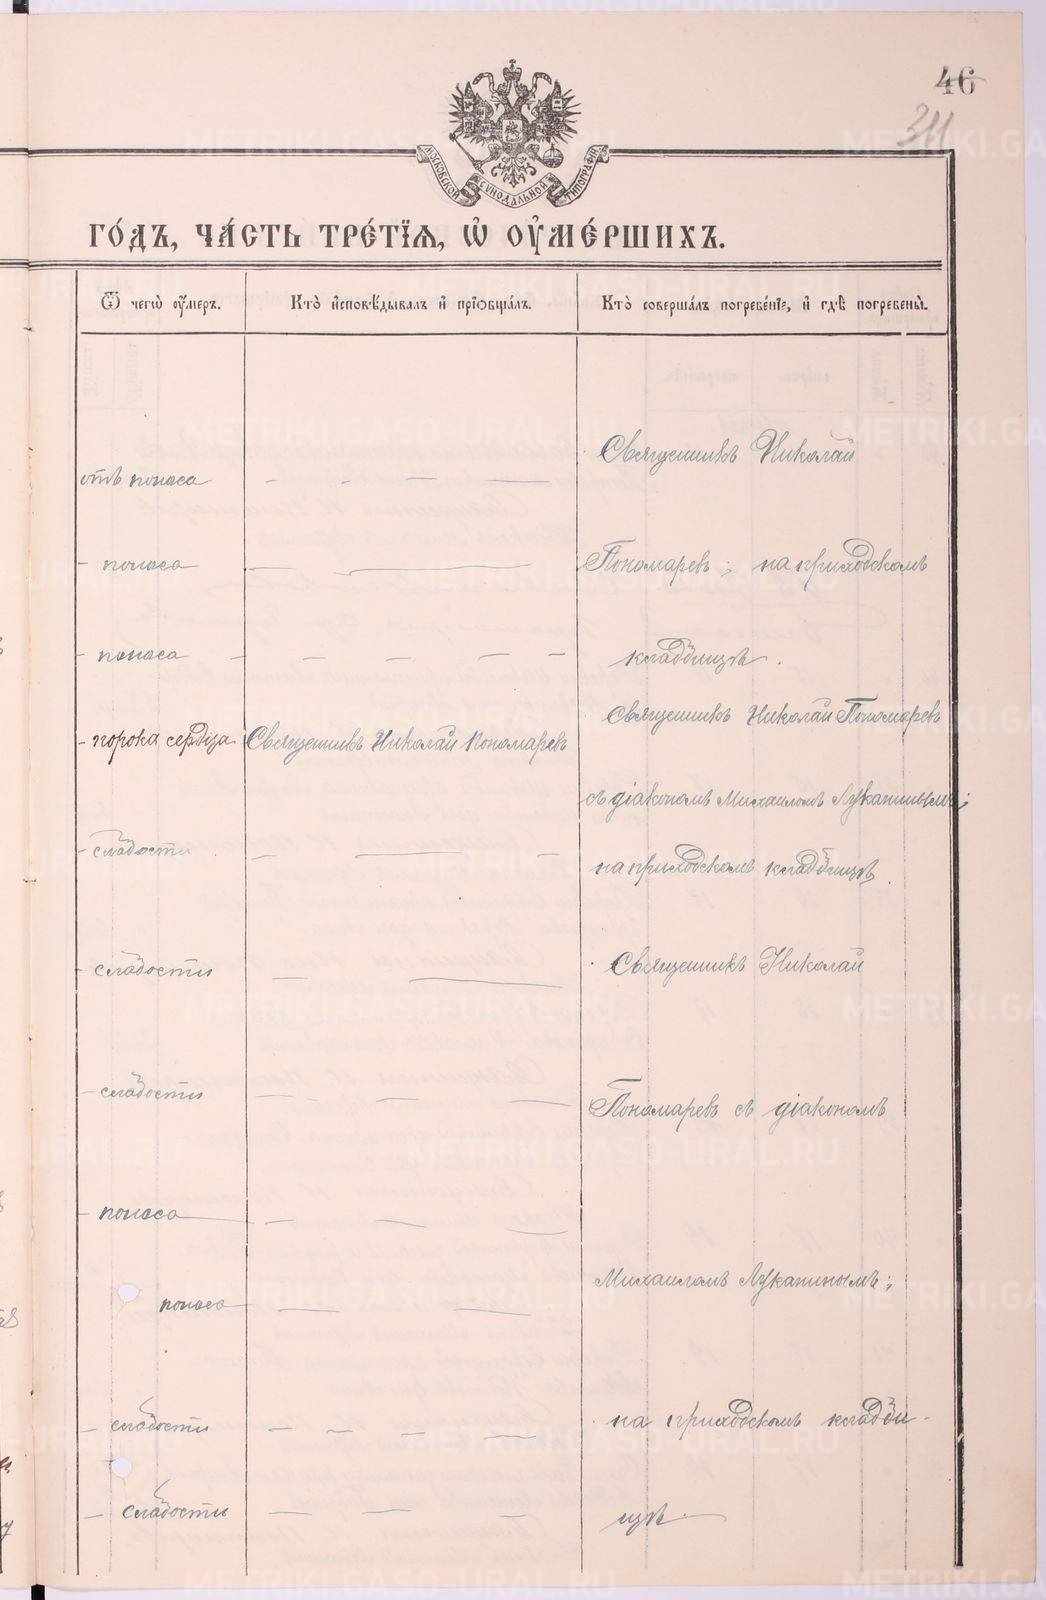 46
311
МОСКОВСКОЙ СѴНОДАЛЬНОЙ ТИПОГРАФІИ
ГО́ДЪ, ЧА́СТЬ ТРЕ́ТЇѦ, Ѡ҆ ОУ҆МЕ́РШИХЪ.
Ѿ чегѡ̀ оу҆́меръ.
Кто̀ и҆сповѣ́дывалъ и҆ прїѡбща́лъ.
Кто̀ соверша́лъ погребе́нїе, и҆ гдѣ̀ погребены̀.
Священникъ Николай
отъ поноса
- поноса
Пономаревъ; на приходскомъ
- поноса
кладбищѣ.
Священникъ Николай Пономаревъ
- порока сердца
Священникъ Николай Пономаревъ
съ діакономъ Михаиломъ Лукапинымъ;
- слабости
на приходскомъ кладбищѣ.
- слабости
Священникъ Николай
- слабости
Пономаревъ съ діакономъ
- поноса
Михаиломъ Лукапинымъ;
поноса
- слабости
на приходскомъ кладби-
- слабости
щѣ.
METRIKI.GASO-URAL.RU